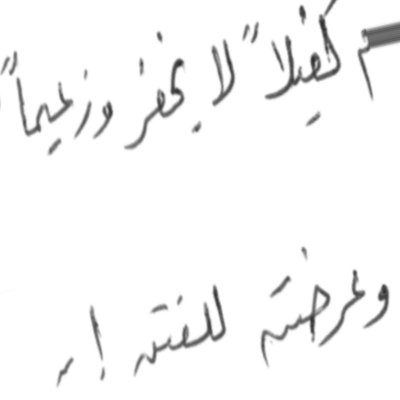 م كفيلاً لا يخفر وزعيماً
وعرضته للفتنة !